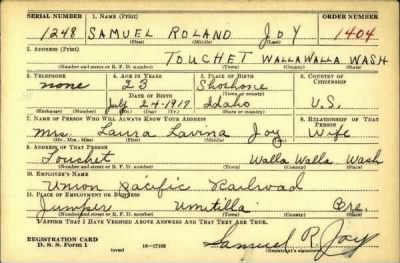 SERIAL NUMBER 1. NAME (Print) ORDER NUMBER
1248 SAMUEL ROLAND JOY 1404
(First) (Middle) (Last)
2. ADDRESS (Print)
TOUCHET WALLA WALLA WASH
(Number and street or R. F. D. number) (Town) (County) (State)
3. TELEPHONE 4. AGE IN YEARS 5. PLACE OF BIRTH 6. COUNTRY OF CITIZENSHIP
none 23 Shoshone
DATE OF BIRTH (Town or county)
July 24-1917 Idaho U.S.
(Exchange) (Number) (Mo.) (Day) (Yr.) (State or country)
7. NAME OF PERSON WHO WILL ALWAYS KNOW YOUR ADDRESS 8. RELATIONSHIP OF THAT PERSON
Mrs. Laura Lavina Joy Wife
(Mr., Mrs., Miss) (First) (Middle) (Last)
9. ADDRESS OF THAT PERSON
Touchet Walla Walla Wash
(Number and street or R. F. D. number) (Town) (County) (State)
10. EMPLOYER'S NAME
Union Pacific Railroad
11. PLACE OF EMPLOYMENT OR BUSINESS
Umitilla Ore.
(Number and street or R. F. D. number) (Town) (County) (State)
I AFFIRM THAT I HAVE VERIFIED ABOVE ANSWERS AND THAT THEY ARE TRUE.
REGISTRATION CARD
D. S. S. Form 1 (over) 16-17105 Samuel R. Joy